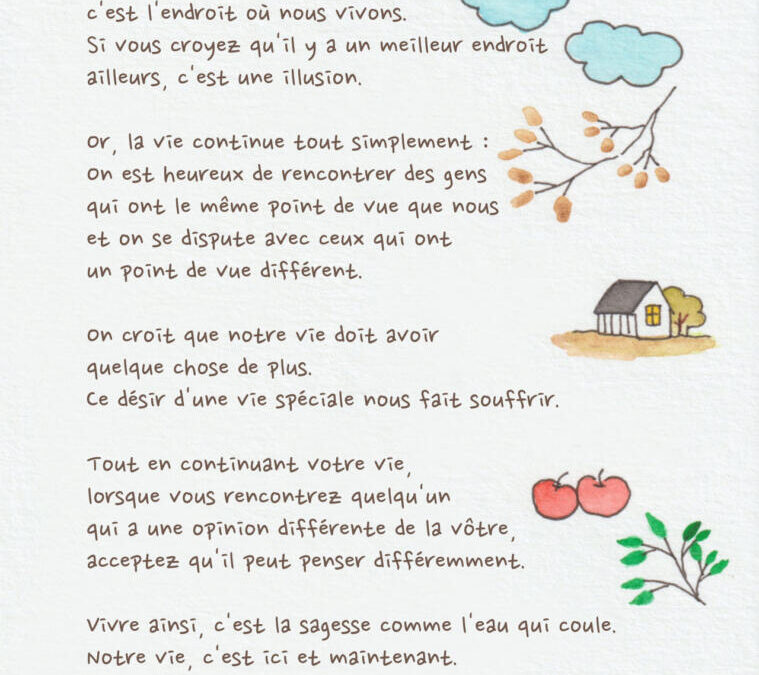 c'est l'endroit où nous vivons.
Si vous croyez qu'il y a un meilleur endroit
ailleurs, c'est une illusion.
Or, la vie continue tout simplement :
On est heureux de rencontrer des gens
qui ont le même point de vue que nous
et on se dispute avec ceux qui ont
un point de vue différent.
On croit que notre vie doit avoir
quelque chose de plus.
Ce désir d'une vie spéciale nous fait souffrir.
Tout en continuant votre vie,
lorsque vous rencontrez quelqu'un
qui a une opinion différente de la vôtre,
acceptez qu'il peut penser différemment.
Vivre ainsi, c'est la sagesse comme l'eau qui coule.
Notre vie, c'est ici et maintenant.